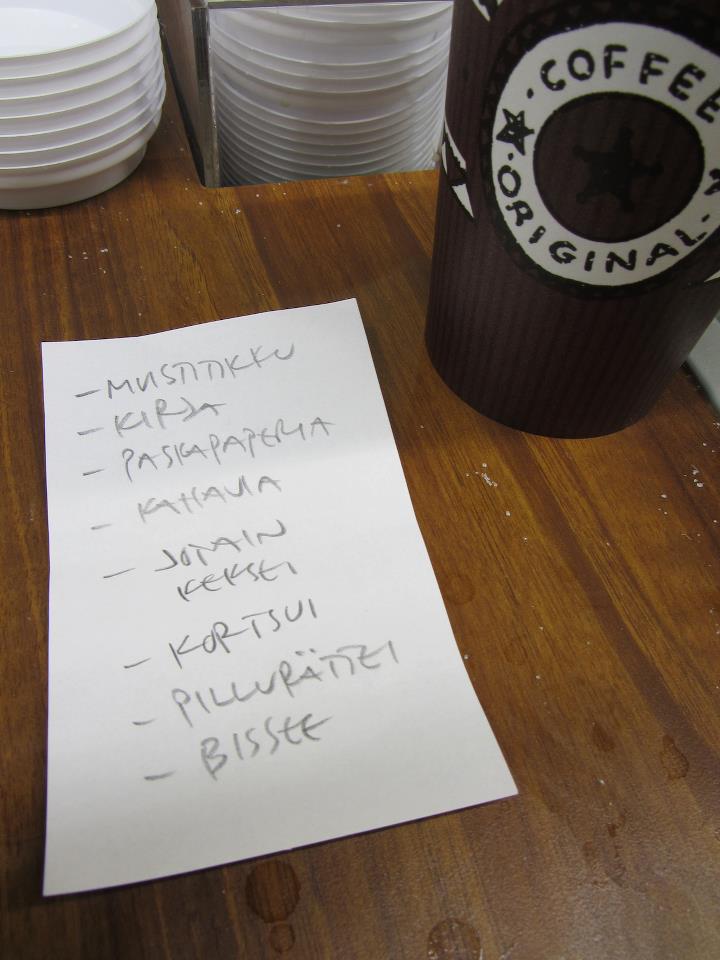 · COFFEE
· ORIGINAL ·
- MUSTIKKU
- KIRJA
- PASKAPAPERIA
- KAHAVIA
- JOTAIN
KEKSEI
- KORTSUI
- PILLURÄTTEI
- BISSEE